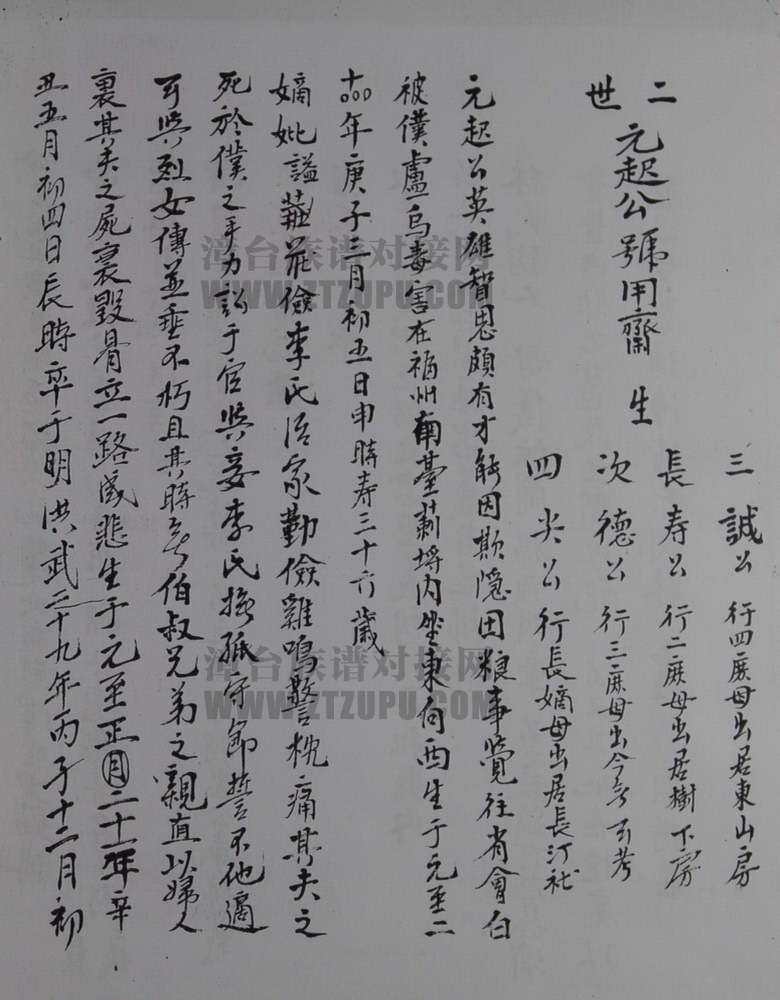 二世
元起公號用齋 生
三誠公 行四庶母出居東山房
長寿公 行二庶母出居樹下房
次德公 行三庶母出今無可考
四尖公 行長嫡母出居長汀社
元起公英雄智恩頗有才能因欺隱田粮事覺往省會白
被僕盧烏毒害在福州南臺埔内坐東向西生于元至二
十年庚子三月初五日申時寿三十六歲
嫡妣謚莊儉李氏治家勤儉雞鳴警枕痛其夫之
死於僕之手力訟于官與妾李氏撫孤守節誓不他適
可與烈女傳並垂不朽且其時無伯叔兄弟之親直以婦人
裹其夫之屍裹毀骨立一路成悲生于元至正月二十一年辛
丑五月初四日辰時卒于明洪武二十九年丙子十二月初
漳台族谱对接网
WWW.ZTZUPU.COM
漳台族谱对接网
WWW.ZTZUPU.COM